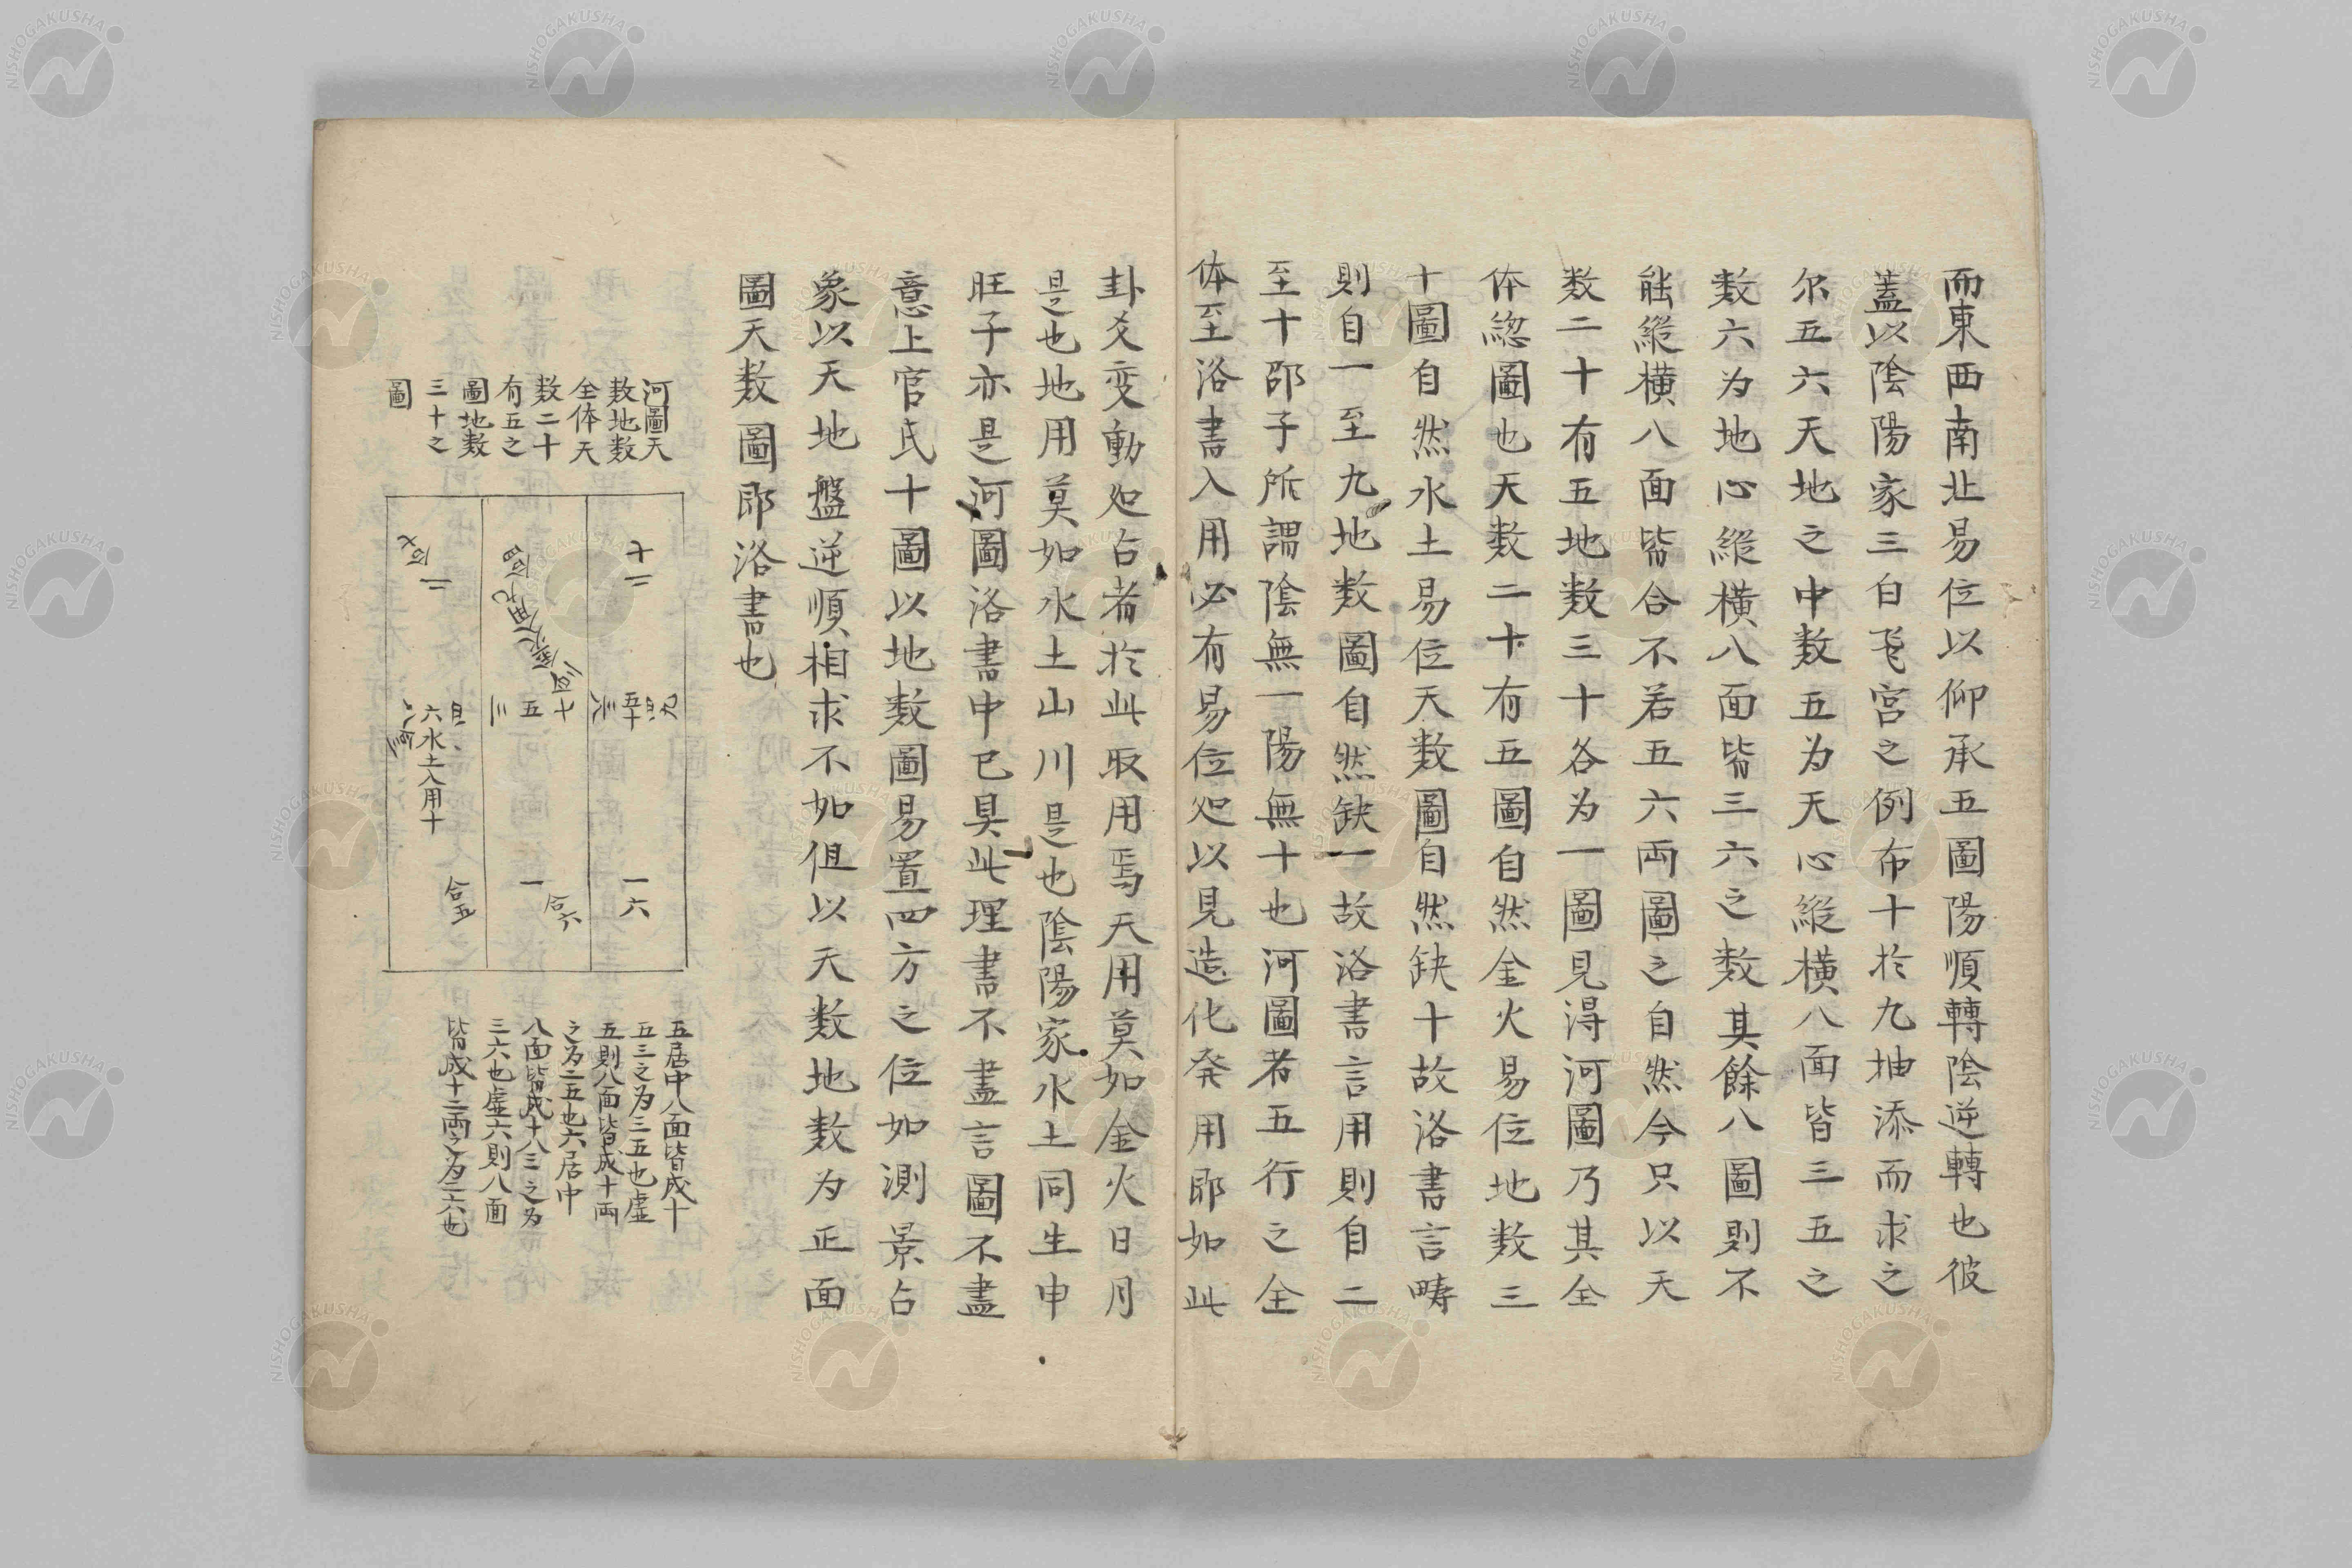 而東西南北易位以仰承五圖陽順轉陰逆轉也彼
蓋以陰陽家三白飛宮之例布十於九抽添而求之
尔五六天地之中数五为天心縱橫八面皆三五之
数六为地心縱橫八面皆三六之数其餘八圖則不
能縱橫八面皆合不若五六両圖之自然今只以天
数二十有五地数三十各为一圖見得河圖乃其全
体総圖也天数二十有五圖自然金火易位地数三
十圖自然水土易位天数圖自然缺十故洛書言疇
則自一至九地数圖自然缺一故洛書言用則自二
至十邵子所謂陰無一陽無十也河圖者五行之全
体至洛書入用必有易位処以見造化発用即如此
卦爻变動処占者於此取用焉天用莫如金火日月
是也地用莫如水土山川是也陰陽家水土同生申
旺子亦是河圖洛書中已具此理書不盡言圖不盡
意上官氏十圖以地数圖易置四方之位如測景占
象以天地盤逆順相求不如但以天数地数为正面
圖天数圖即洛書也
河圖天
数地数
全体天
数二十
有五之
圖地数
三十之
圖
十二
一六
七五三
一
合六
二
六水土入用十
合五
五居中八面皆成十
五三之为三五也虛
五則八面皆成十両
之为二五也六居中
八面皆成十八三之为
三六也虛六則八面
皆成十二両之为二六也
NISHOGAKUSHA